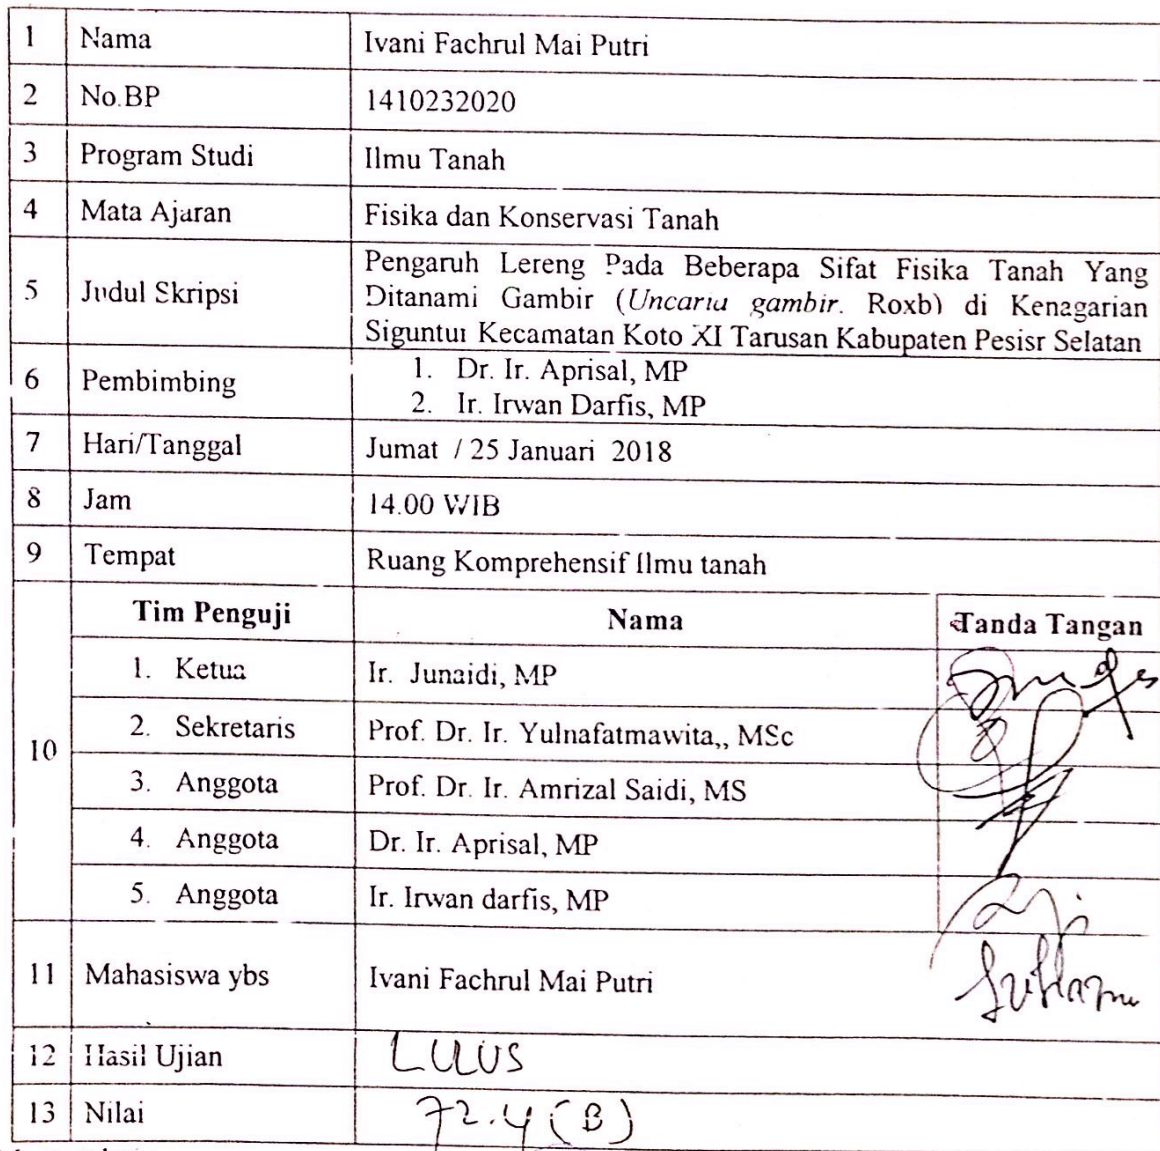 1 Nama Ivani Fachrul Mai Putri
2 No.BP 1410232020
3 Program Studi Ilmu Tanah
4 Mata Ajaran Fisika dan Konservasi Tanah
5 Judul Skripsi Pengaruh Lereng Pada Beberapa Sifat Fisika Tanah Yang
Ditanami Gambir (Uncaria gambir. Roxb) di Kenagarian
Siguntur Kecamatan Koto XI Tarusan Kabupaten Pesisr Selatan
6 Pembimbing 1. Dr. Ir. Aprisal, MP
2. Ir. Irwan Darfis, MP
7 Hari/Tanggal Jumat / 25 Januari 2018
8 Jam 14.00 WIB
9 Tempat Ruang Komprehensif Ilmu tanah
10 Tim Penguji Nama Tanda Tangan
1. Ketua Ir. Junaidi, MP
2. Sekretaris Prof. Dr. Ir. Yulnafatmawita,, MSc
3. Anggota Prof. Dr. Ir. Amrizal Saidi, MS
4. Anggota Dr. Ir. Aprisal, MP
5. Anggota Ir. Irwan darfis, MP
11 Mahasiswa ybs Ivani Fachrul Mai Putri
12 Hasil Ujian LULUS
13 Nilai 72.4 (B)